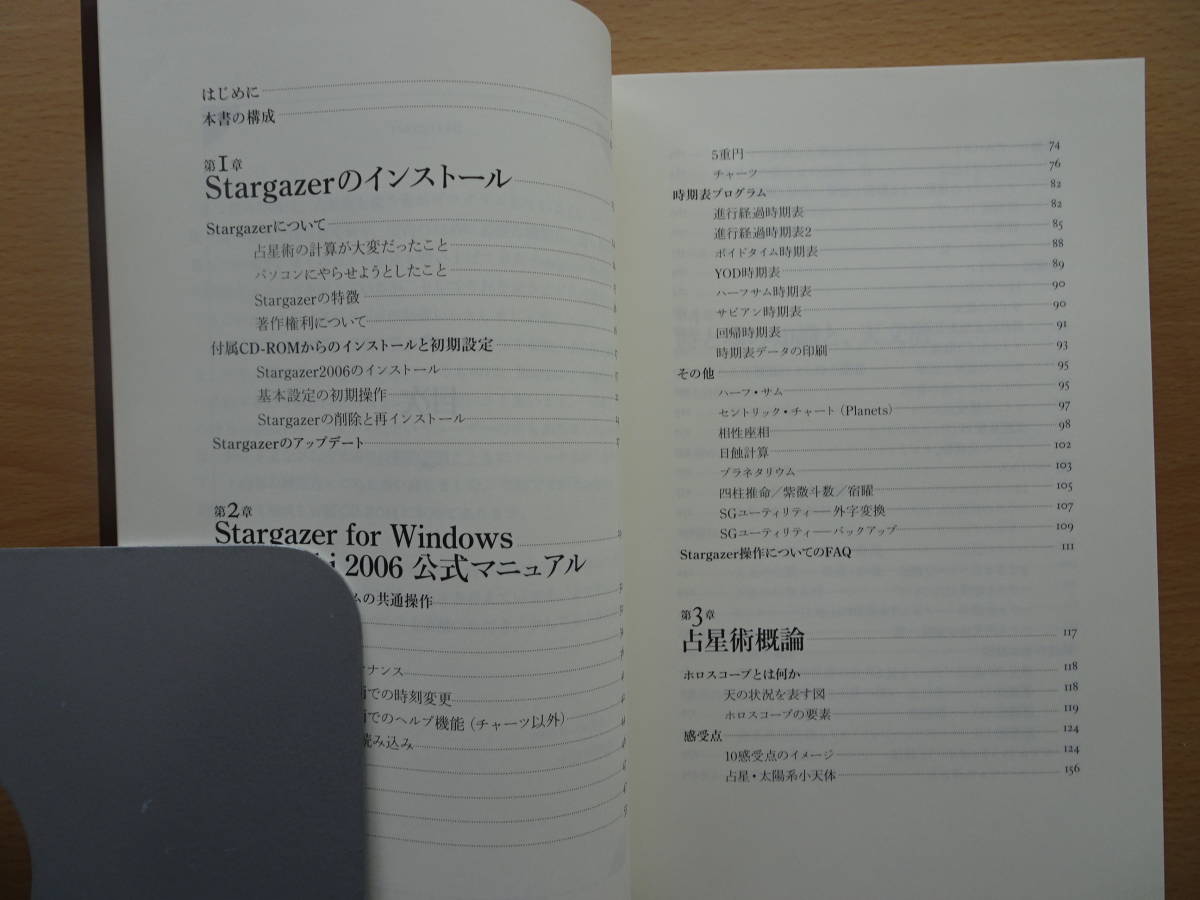 はじめに
本書の構成
第1章
Stargazerのインストール
Stargazerについて
占星術の計算が大変だったこと
パソコンにやらせようとしたこと
Stargazerの特徴
著作権利について
付属CD-ROMからのインストールと初期設定
Stargazer2006のインストール
基本設定の初期操作
Stargazerの削除と再インストール
Stargazerのアップデート
第2章
Stargazer for Windows
i 2006 公式マニュアル
ムの共通操作
ナンス
面での時刻変更
面でのヘルプ機能（チャーツ以外）
読み込み
5重円 74
チャーツ 76
時期表プログラム 82
進行経過時期表 82
進行経過時期表2 85
ボイドタイム時期表 88
YOD時期表 89
ハーフサム時期表 90
サビアン時期表 90
回帰時期表 91
時期表データの印刷 93
その他 95
ハーフ・サム 95
セントリック・チャート（Planets） 97
相性座相 98
日蝕計算 102
プラネタリウム 103
四柱推命／紫微斗数／宿曜 105
SGユーティリティ―外字変換 107
SGユーティリティ―バックアップ 109
Stargazer操作についてのFAQ 111
第3章
占星術概論 117
ホロスコープとは何か 118
天の状況を表す図 118
ホロスコープの要素 119
感受点 124
10感受点のイメージ 124
占星・太陽系小天体 156